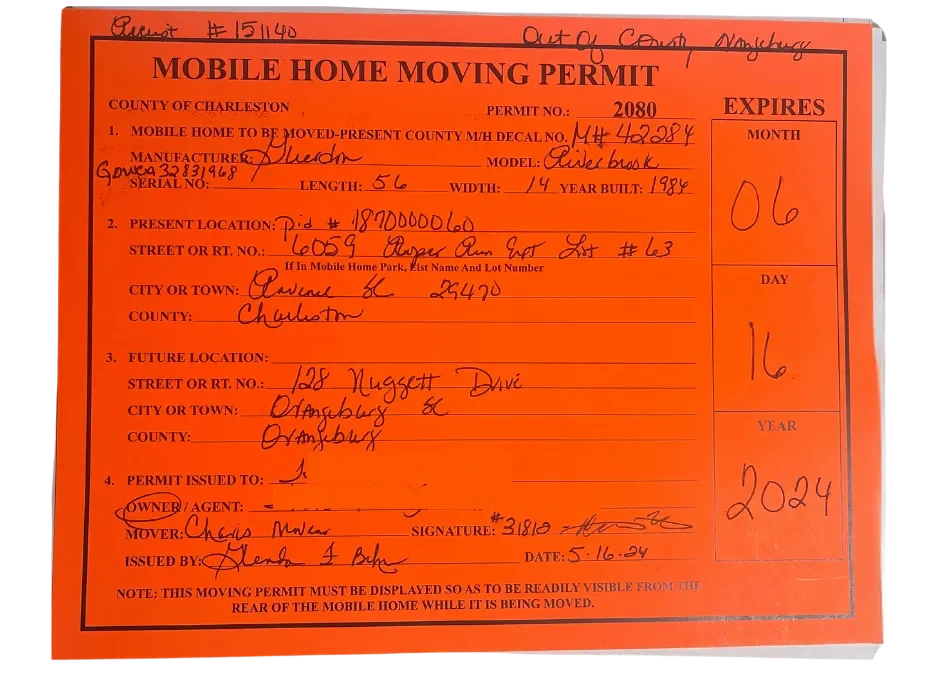 Receipt # 151140
Out Of County Orangeburg
MOBILE HOME MOVING PERMIT
COUNTY OF CHARLESTON
PERMIT NO.: 2080
EXPIRES
1. MOBILE HOME TO BE MOVED-PRESENT COUNTY M/H DECAL NO. M# 42284
MONTH
MANUFACTURER:
MODEL: Riverbrook
GDWGA32831968
SERIAL NO: LENGTH: 56 WIDTH: 14 YEAR BUILT: 1984
06
2. PRESENT LOCATION: Pid # 1870000060
STREET OR RT. NO.: 6059 Roper Run Ext Lot # 63
If In Mobile Home Park, List Name And Lot Number
DAY
CITY OR TOWN: Ravenel SC 29470
COUNTY: Charleston
16
3. FUTURE LOCATION:
STREET OR RT. NO.: 128 Nuggett Drive
CITY OR TOWN: Orangeburg SC
YEAR
COUNTY: Orangeburg
4. PERMIT ISSUED TO:
2024
OWNER / AGENT:
MOVER: SIGNATURE: #31810
ISSUED BY: Glenda DATE: 5-16-24
NOTE: THIS MOVING PERMIT MUST BE DISPLAYED SO AS TO BE READILY VISIBLE FROM THE
REAR OF THE MOBILE HOME WHILE IT IS BEING MOVED.